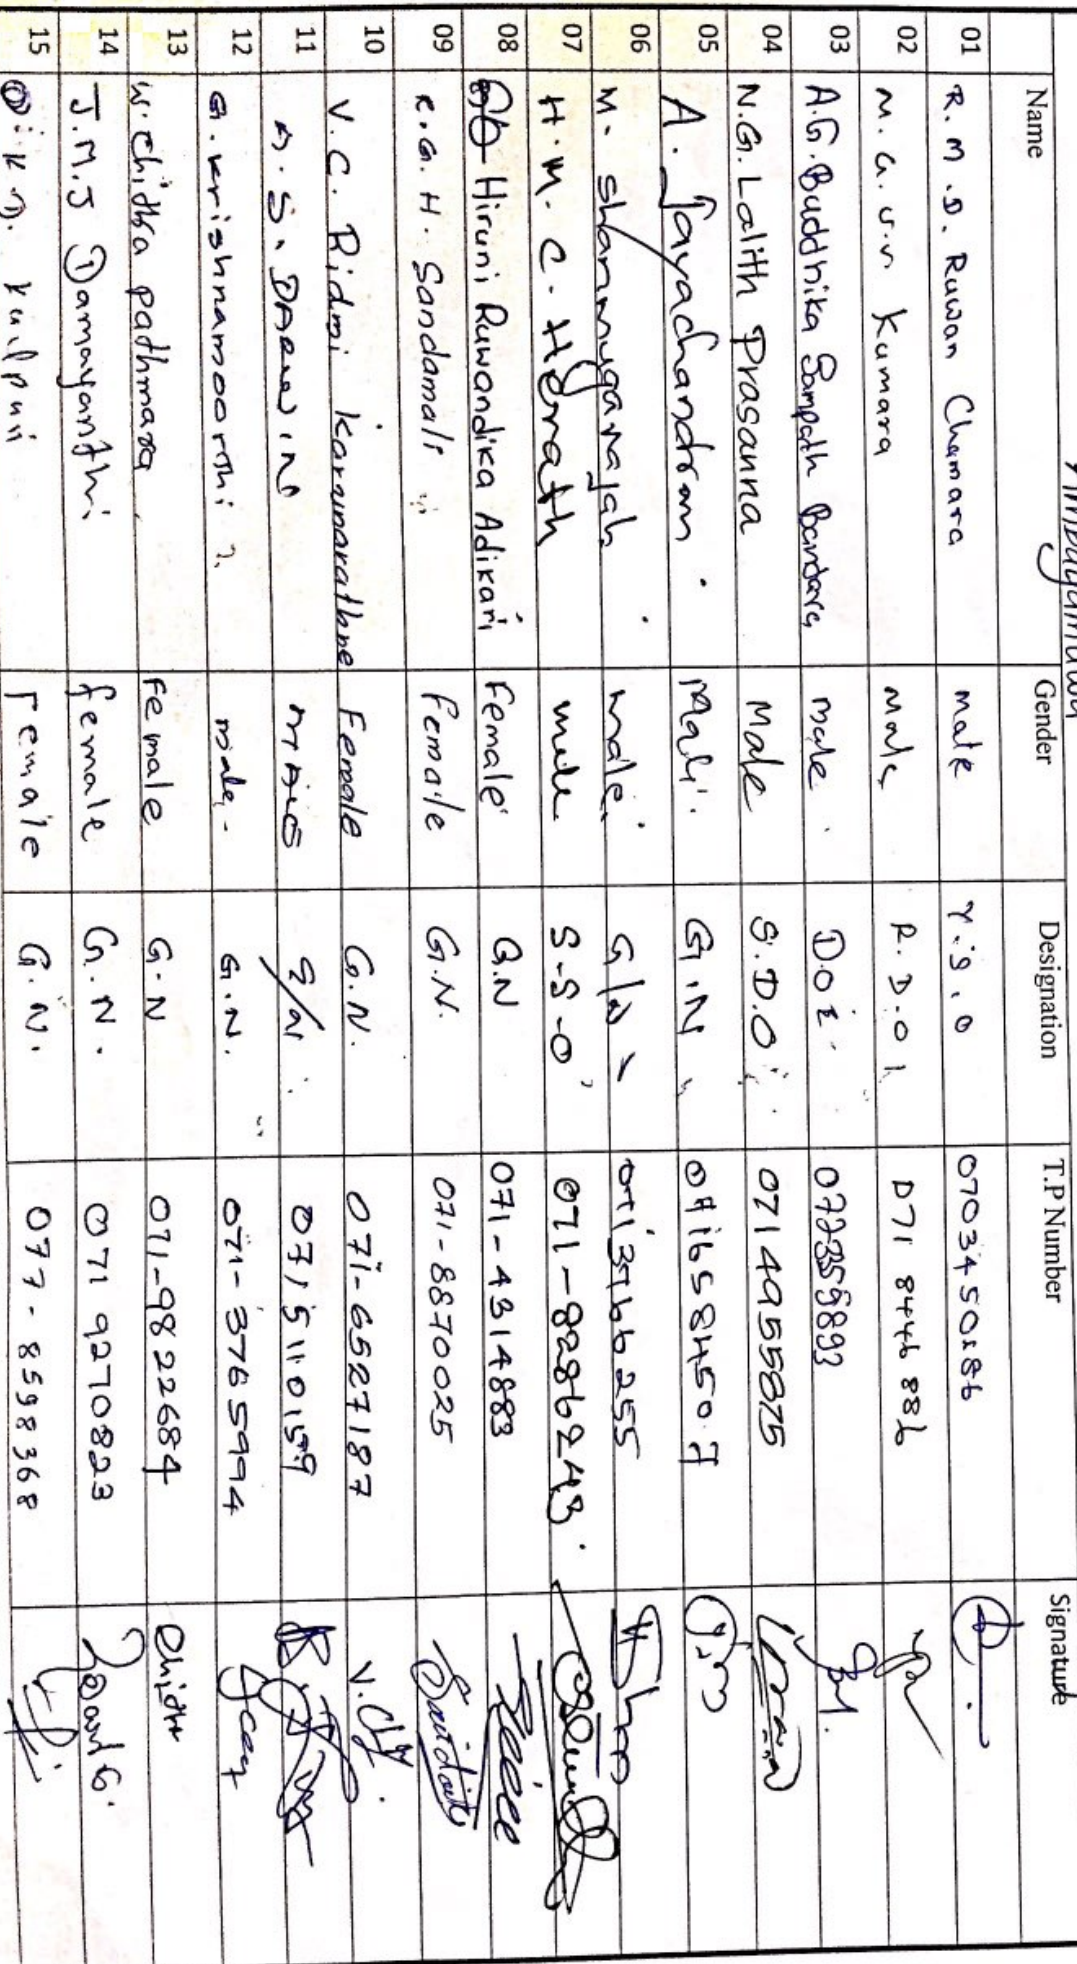 Name Gender Designation T.P Number Signature
01 R. M. D. Ruwan Chamara male Y.S.O 0703450186
02 M. G. U. N Kumara Male R.D.O 0718446886
03 A.G. Buddhika Sampath Bandara Male D.O 072359893
04 N.G. Lalith Prasanna Male S.D.O 0714955875
05 A. Jayachandran. G.N
06 M. shanmugarajah male. G/N 0713766255
07 H.M.C. Herath male S-S-O 071-8286243.
08 Hiruni Ruwandika Adikari Female G.N 071-4314883
09 R.G.H. Sandamali Female G.N. 071-8870025
10 V.C. Ridmi Karunarathne Female G.N. 071-6527187
11 0715110159
12 G. Krishnamoorthi male G.N. 071-3765994
13 W. Chithra pathmara Female G.N 071-9822684
14 J.M.J Damayanthi female G.N. 071 9270823
15 female G.N. 077-8598368